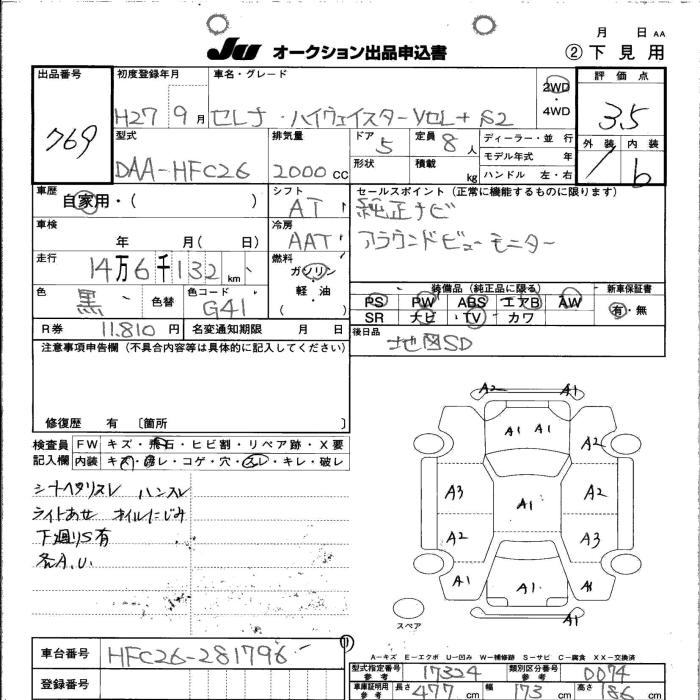 月 日 AA
JU オークション出品申込書 ② 下見用
出品番号 769
初度登録年月 H27 9月
車名・グレード セレナ・ハイウェイスターVセレ+ S2
2WD・4WD
評価点 3.5
外装 内装 b
型式 DAA-HFC26
排気量 2000 CC
ドア 5 定員 8人
形状 積載 kg
ディーラー・並行
モデル年式 年
ハンドル 左・右
車歴 自家用・( )
シフト AT
セールスポイント(正常に機能するものに限ります)
純正ナビ
アラウンドビューモニター
車検 年 月( 日)
冷房 AAT
走行 14万6千132km
燃料 ガソリン 軽・油 ( )
色 黒 色替 色コード G41
装備品(純正品に限る) 新車保証書
PS PW ABS エアB AW 有・無
SR ナビ TV カワ
R券 11,810円 名変通知期限 月 日
後日品 地図SD
注意事項申告欄(不具合内容等は具体的に記入してください)
修復歴 有 〔箇所 〕
検査員記入欄 FW キズ・飛石・ヒビ割・リペア跡・X要
内装 キズ・汚レ・コゲ・穴・スレ・キレ・破レ
シートヘタリスレ ハンスレ
ライトあせ オイルにじみ
下廻りS有
各A.U.
A2 A1
A1 A1
A2
A3 A1 A2
A2 A3
A1 A1 A1
A1
スペア
A-キズ E-エクボ U-凹み W-補修跡 S-サビ C-腐食 XX-交換済
車台番号 HFC26-281796
登録番号
型式指定番号 参考 17324 類別区分番号 参考 0074
車庫証明用 参考 長さ 477 cm 幅 173 cm 高さ 186 cm